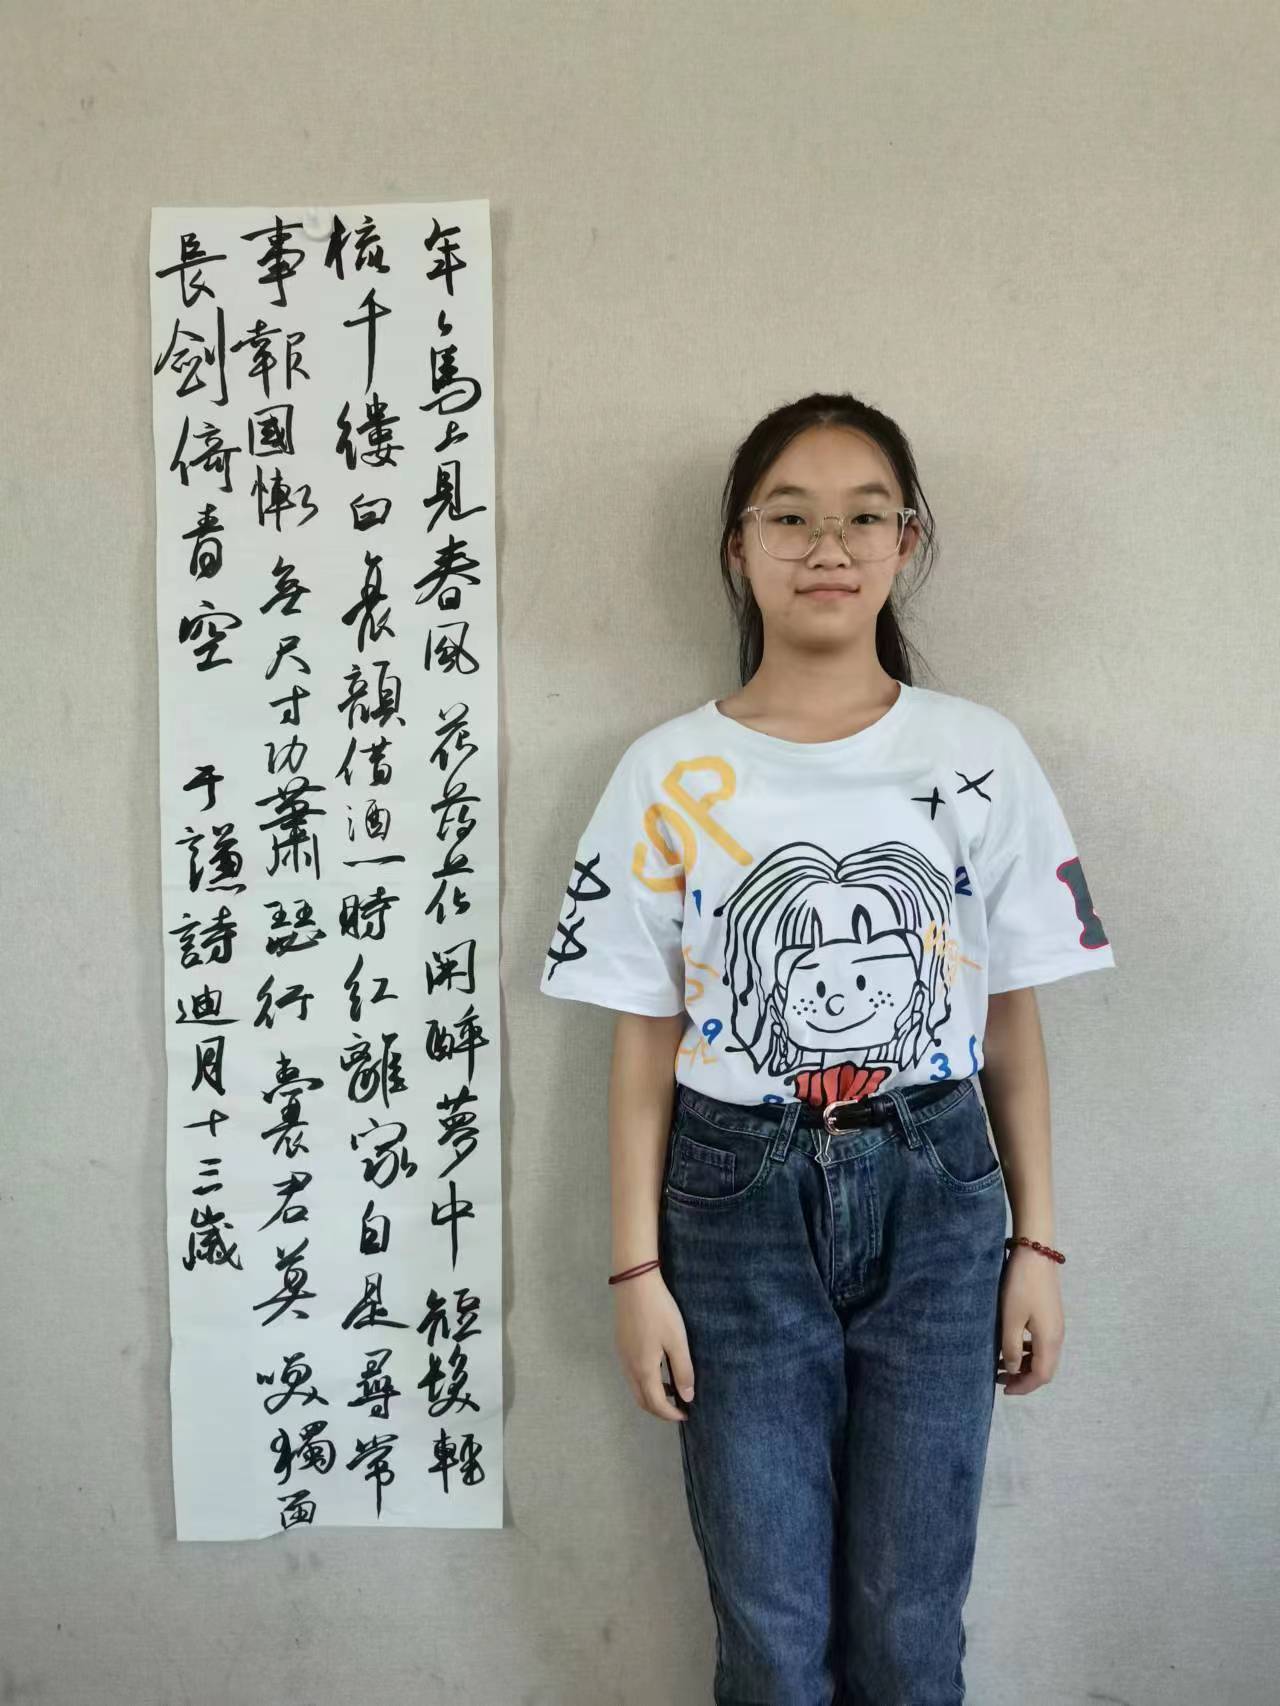 年々馬上見春風花落花開醉夢中短髮輕
梳千縷白衰顏借酒一時紅離家自是尋常
事報國慚無尺寸功蕭瑟行囊君莫笑獨面
長劍倚青空 于謙詩迪月十三歲
OP
1
2
9
3